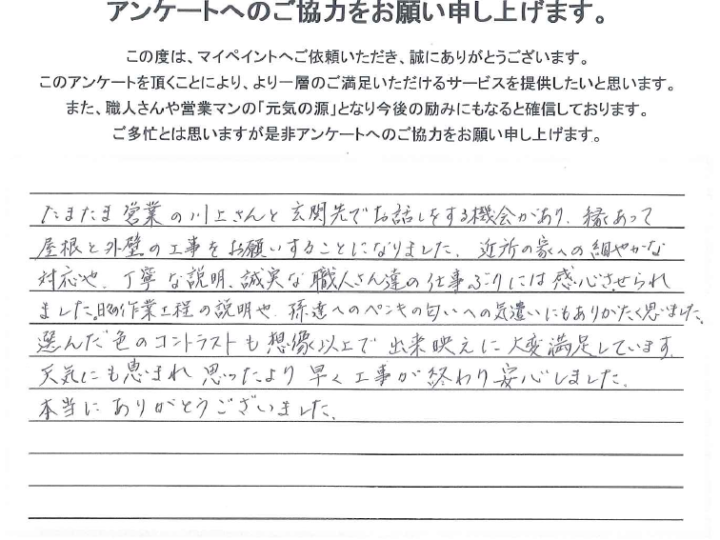 アンケートへのご協力をお願い申し上げます。
この度は、マイペイントへご依頼いただき、誠にありがとうございます。
このアンケートを頂くことにより、より一層のご満足いただけるサービスを提供したいと思います。
また、職人さんや営業マンの「元気の源」となり今後の励みにもなると確信しております。
ご多忙とは思いますが是非アンケートへのご協力をお願い申し上げます。
たまたま営業の川上さんと玄関先でお話しをする機会があり、縁あって
屋根と外壁の工事をお願いすることになりました。近所の家への細やかな
対応や、丁寧な説明、誠実な職人さん達の仕事ぶりには感心させられ
ました。日々の作業工程の説明や、孫達へのペンキの匂いへの気遣いにもありがたく思いました。
選んだ色のコントラストも想像以上で出来映えに大変満足しています。
天気にも恵まれ思ったより早く工事が終わり安心しました。
本当にありがとうございました。